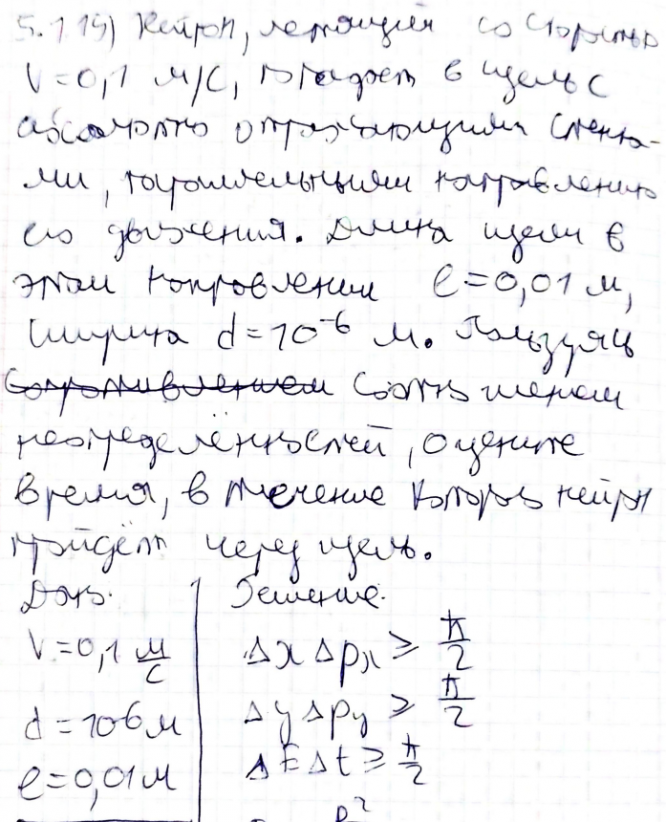 5.1.15) Нейтрон, летящий со скоростью
V=0,1 м/с, попадает в щель с
абсолютно отражающими стенка-
ми, параллельными направлению
его движения. Длина щели в
этом направлении l=0,01 м,
ширина d=10⁻⁶ м. Пользуясь
сопротивлением соотношением
неопределённостей, оцените
время, в течение которого нейтрон
пройдёт через щель.
Дано: Решение:
V=0,1 м/с Δx Δpx ≥ ħ/2
d=10⁻⁶ м Δy Δpy ≥ ħ/2
l=0,01 м ΔE Δt ≥ ħ/2